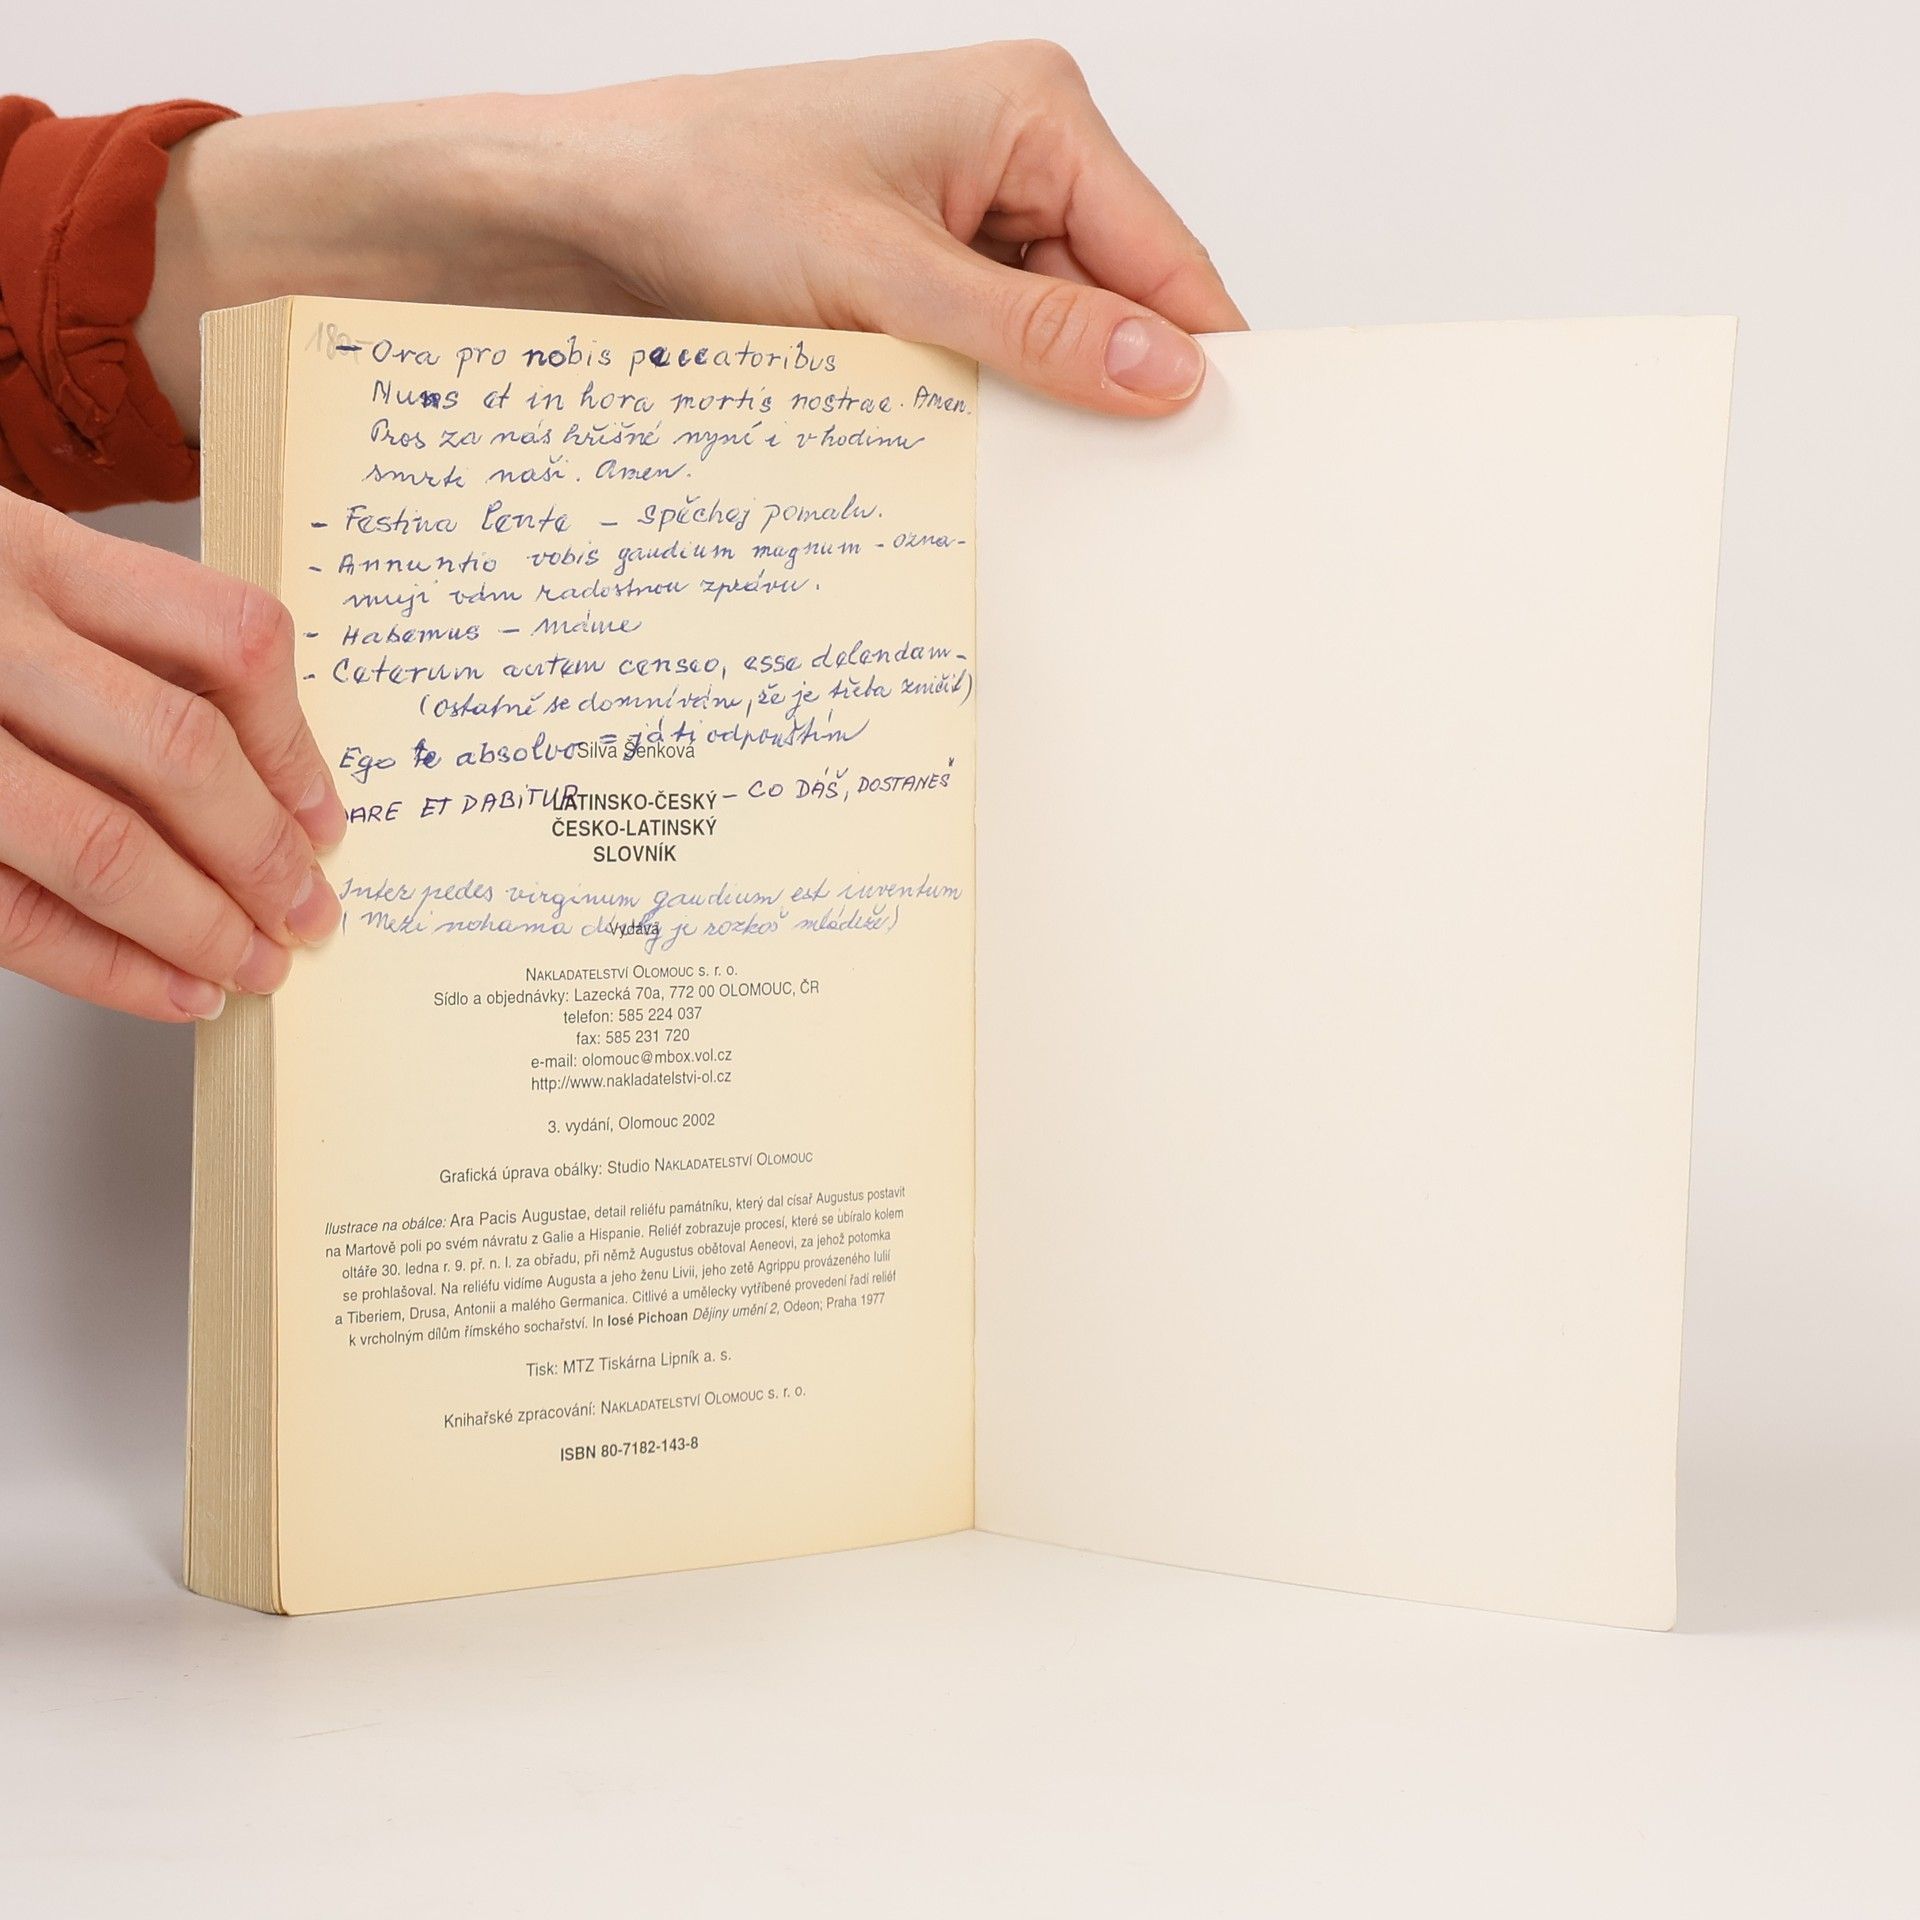 180,-
- Ora pro nobis peccatoribus
Nuns et in hora mortis nostrae. Amen.
Pros za nás hříšné nyní i v hodinu
smrti naši. Amen.
- Festina lente - Spěchej pomalu.
- Annuntio vobis gaudium magnum - ozna-
muji vám radostnou zprávu.
- Habemus - máme
- Ceterum autem censeo, esse delendam -
(ostatně se domnívám, že je třeba zničit)
Ego te absolvo = já ti odpouštím
Silva Šenková
DARE ET DABITUR - CO DÁŠ, DOSTANEŠ
LATINSKO-ČESKÝ
ČESKO-LATINSKÝ
SLOVNÍK
Inter pedes virginum gaudium est iuventum
(Mezi nohama dívky je rozkoš mládeže)
Vydává
NAKLADATELSTVÍ OLOMOUC s. r. o.
Sídlo a objednávky: Lazecká 70a, 772 00 OLOMOUC, ČR
telefon: 585 224 037
fax: 585 231 720
e-mail: olomouc@mbox.vol.cz
http://www.nakladatelstvi-ol.cz
3. vydání, Olomouc 2002
Grafická úprava obálky: Studio NAKLADATELSTVÍ OLOMOUC
Ilustrace na obálce: Ara Pacis Augustae, detail reliéfu památníku, který dal císař Augustus postavit
na Martově poli po svém návratu z Galie a Hispanie. Reliéf zobrazuje procesí, které se ubíralo kolem
oltáře 30. ledna r. 9. př. n. l. za obřadu, při němž Augustus obětoval Aeneovi, za jehož potomka
se prohlašoval. Na reliéfu vidíme Augusta a jeho ženu Livii, jeho zetě Agrippu provázeného Iulií
a Tiberiem, Drusa, Antonii a malého Germanica. Citlivé a umělecky vytříbené provedení řadí reliéf
k vrcholným dílům římského sochařství. In Iosé Pichoan Dějiny umění 2, Odeon; Praha 1977
Tisk: MTZ Tiskárna Lipník a. s.
Knihařské zpracování: NAKLADATELSTVÍ OLOMOUC s. r. o.
ISBN 80-7182-143-8